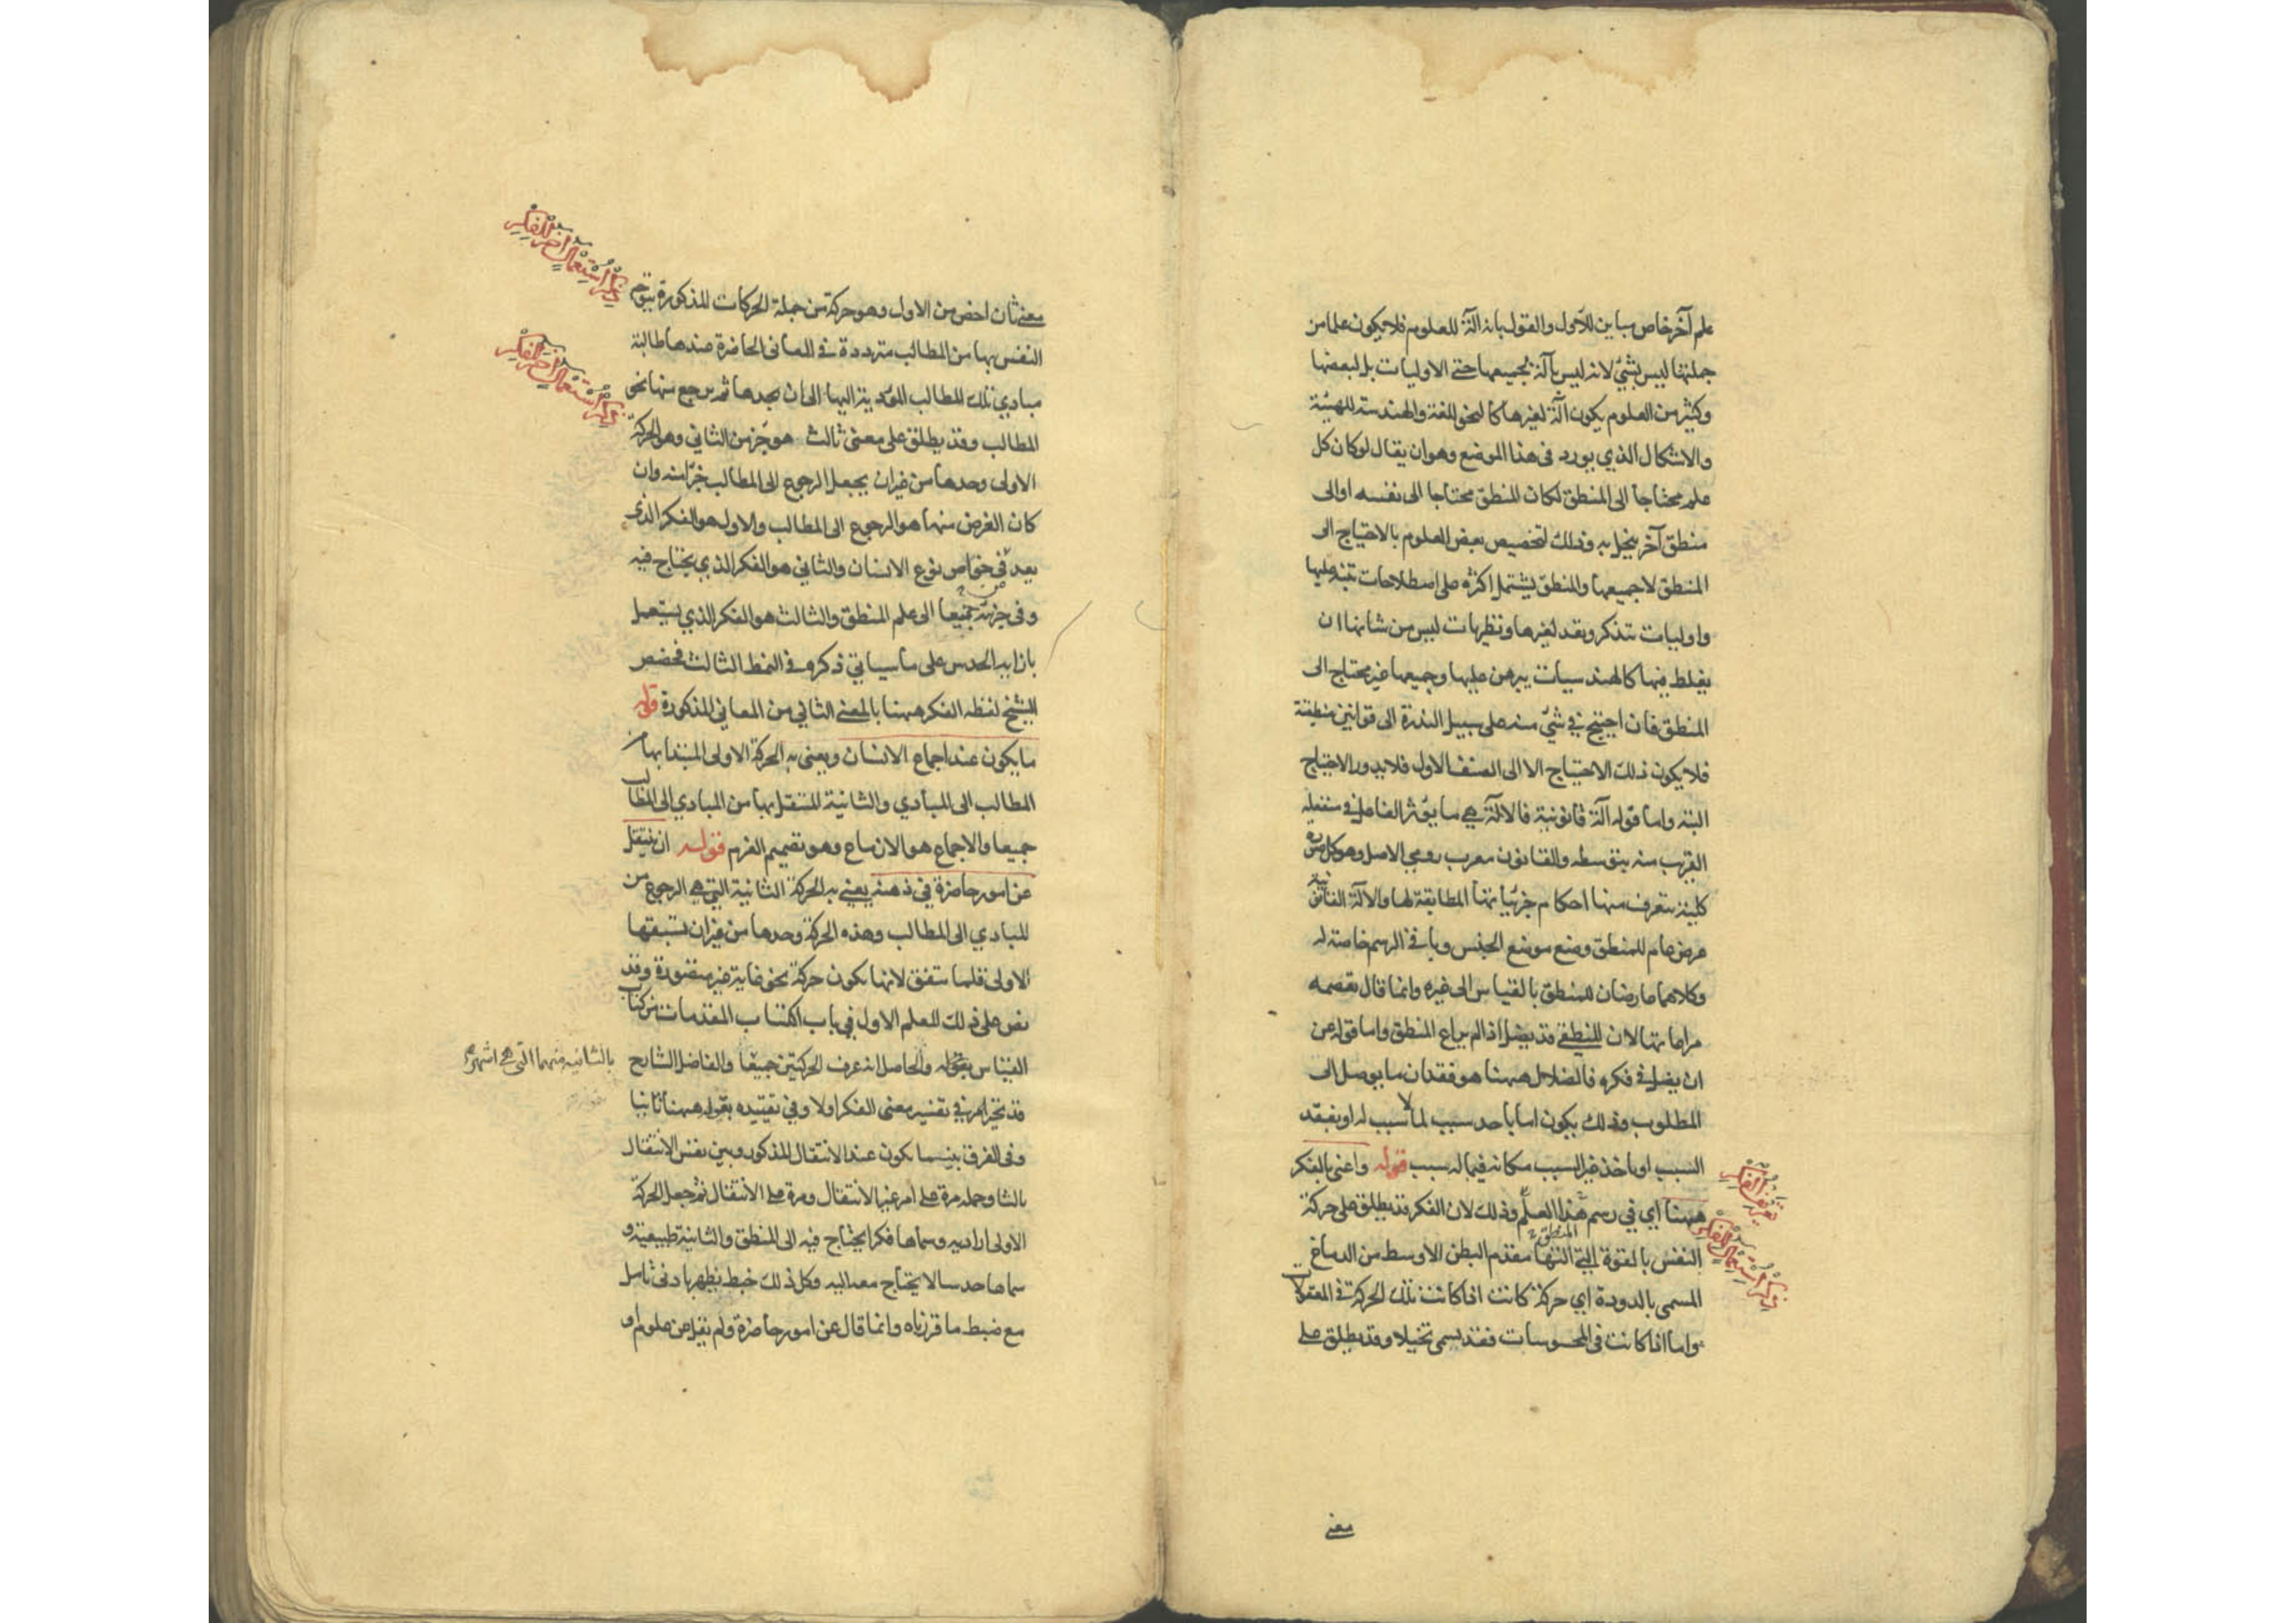 علم آخر خاص مباين للأول والقول بانه آلة للعلوم فلا يكون علما من
جملتها ليس بشئ لانه ليس بآلة لجميعها حتى الاوليات بل لبعضها
وكثير من العلوم يكون آلة لغيرها كالنحو للغة والهندسة للهيئة
والاشكال الذي يورد في هذا الموضع وهو ان يقال لو كان كل
علم محتاجا الى المنطق لكان المنطق محتاجا الى نفسه او الى
منطق آخر ينحل به وذلك لتخصيص بعض العلوم بالاحتياج الى
المنطق لا جميعها والمنطق يشتمل اكثره على اصطلاحات تنبه عليها
واوليات تتذكر وتعد لغيرها ونظريات ليس من شانها ان
يغلط فيها كالهندسيات يبرهن عليها وجميعها غير محتاج الى
المنطق فان احتيج في شئ منه على سبيل الندرة الى قوانين منطقية
فلا يكون ذلك الاحتياج الا الى الصنف الاول فلا يدور الاحتياج
البته واما قوله آلة قانونية فالالة هي ما يؤثر الفاعل في منفعله
القريب منه بتوسطه والقانون معرب رومي الاصل وهو كل صورة
كلية يتعرف منها احكام جزئياتها المطابقة لها والآلة القانونية
عرض عام للمنطق وضع موضع الجنس وباقي الرسم خاصة له
وكلاهما عارضان للمنطق بالقياس الى غيره وانما قال تعصمه
مراعاتها لان المنطقي قد يضل اذا لم يراع المنطق واما قوله عن
ان يضل في فكره فالضلال ههنا هو فقدان ما يوصل الى
المطلوب وذلك يكون اما باخذ سبب لما لا سبب له او بفقد
السبب او باخذ غير السبب مكانه فيما له سبب قوله واعني بالفكر
ههنا اي في رسم هذا العلم وذلك لان الفكر قد يطلق على حركة
المنطق
النفس بالقوة التي آلتها مقدم البطن الاوسط من الدماغ
المسمى بالدودة اي حركة كانت اذا كانت تلك الحركة في المعقولات
واما اذا كانت في المحسوسات فقد يسمى تخيلا وقد يطلق على
تعريف الفكر
ذكر استعمال الفكر
معنى
معنى ثان اخص من الاول وهو حركة من جملة الحركات المذكورة يتوجه
النفس بها من المطالب مترددة في المعاني الحاضرة عندها طالبة
مبادي تلك المطالب المؤدية اليها الى ان يجدها ثم يرجع منها نحو
المطالب وقد يطلق على معنى ثالث هو جزء من الثاني وهو الحركة
الاولى وحدها من غير ان يجعل الرجوع الى المطالب جزءا منه وان
كان الغرض منها هو الرجوع الى المطالب والاول هو الفكر الذي
يعد في خواص نوع الانسان والثاني هو الفكر الذي يحتاج فيه
وفي جزئيه جميعا الى علم المنطق والثالث هو الفكر الذي يستعمل
بازايه الحدس على ما سياتي ذكره في النمط الثالث فخصص
الشيخ لفظه الفكر ههنا بالمعنى الثاني من المعاني المذكورة قوله
ما يكون عند اجماع الانسان ويعني به الحركة الاولى المبتدا بها من
المطالب الى المبادي والثانية المنتقل بها من المبادي الى المطالب
جميعا والاجماع هو الازماع وهو تصميم العزم قوله ان ينتقل
عن امور حاضرة في ذهنه يعني به الحركة الثانية التي هي الرجوع من
المبادي الى المطالب وهذه الحركة وحدها من غير ان تسبقها
الاولى قلما تتفق لانها يكون حركة نحو غاية غير متصورة وقد
نص على ذلك المعلم الاول في باب اكتساب المقدمات من كتاب
القياس بقوله والحاصل انه عرف الحركتين جميعا والفاضل الشارح
قد تحير امره في تفسير معنى الفكر اولا وفي تقييده بقوله ههنا ثانيا
وفي الفرق بين ما يكون عند الانتقال المذكور وبين نفس الانتقال
ثالثا وحمله مرة على امر غير الانتقال ومرة على الانتقال ثم جعل الحركة
الاولى ارادية وسماها فكرا يحتاج فيه الى المنطق والثانية طبيعية و
سماها حدسا لا يحتاج معه اليه وكل ذلك خبط يظهر بادنى تامل
مع ضبط ما قررناه وانما قال عن امور حاضرة ولم يقل عن علوم او
ذكر استعمال اخر للفكر
ذكر استعمال اخر للفكر
بالثانية منهما التي هي اشهر